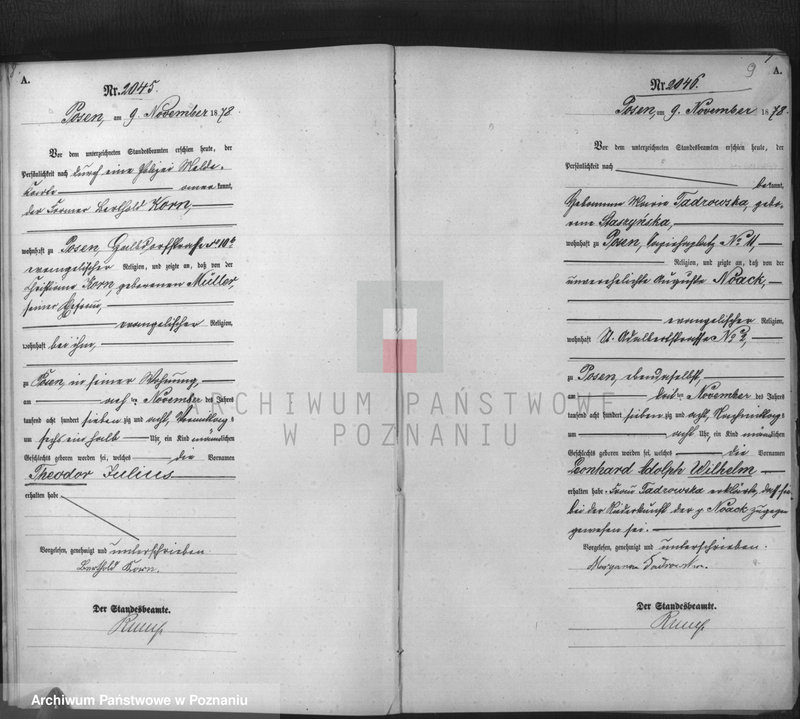 8
A.
Nr. 2045.
Posen, am 9. November 1878.
Vor dem unterzeichneten Standesbeamten erschien heute, der
Persönlichkeit nach durch eine Polizei Melde-
karte kannt,
der Former Berthold Korn,
wohnhaft zu Posen,
evangelischer Religion, und zeigte an, daß von der
Christiane Korn, geborenen Müller,
seiner Ehefrau,
evangelischer Religion,
wohnhaft bei ihm,
zu Posen in seiner Wohnung,
am November des Jahres
tausend acht hundert sieben zig und acht, Vormittags
um sechs ein halb Uhr, ein Kind männlichen
Geschlechts geboren worden sei, welches die Vornamen
Theodor Julius
erhalten habe
Vorgelesen, genehmigt und unterschrieben
Berthold Korn.
Der Standesbeamte.
9
A.
Nr. 2046.
Posen, am 9. November 1878.
Vor dem unterzeichneten Standesbeamten erschien heute, der
Persönlichkeit nach
bekannt,
Hebamme Maria Tadrowska, gebo-
rene Staszyńska,
wohnhaft zu Posen, Sapiehaplatz No 11,
Religion, und zeigte an, daß von der
unverehelichte Auguste Noack,
evangelischer Religion,
wohnhaft St. Adalbertstrasse No 3,
zu Posen, ebendaselbst,
am November des Jahres
tausend acht hundert sieben zig und acht, Nachmittags
um acht Uhr, ein Kind männlichen
Geschlechts geboren worden sei, welches die Vornamen
Leonhard Adolph Wilhelm
erhalten habe. Frau Tadrowska erklärte, daß sie
bei der Niederkunft der p Noack zugegen
gewesen sei.
Vorgelesen, genehmigt und unterschrieben.
Der Standesbeamte.
ARCHIWUM PAŃSTWOWE
W POZNANIU
Archiwum Państwowe w Poznaniu